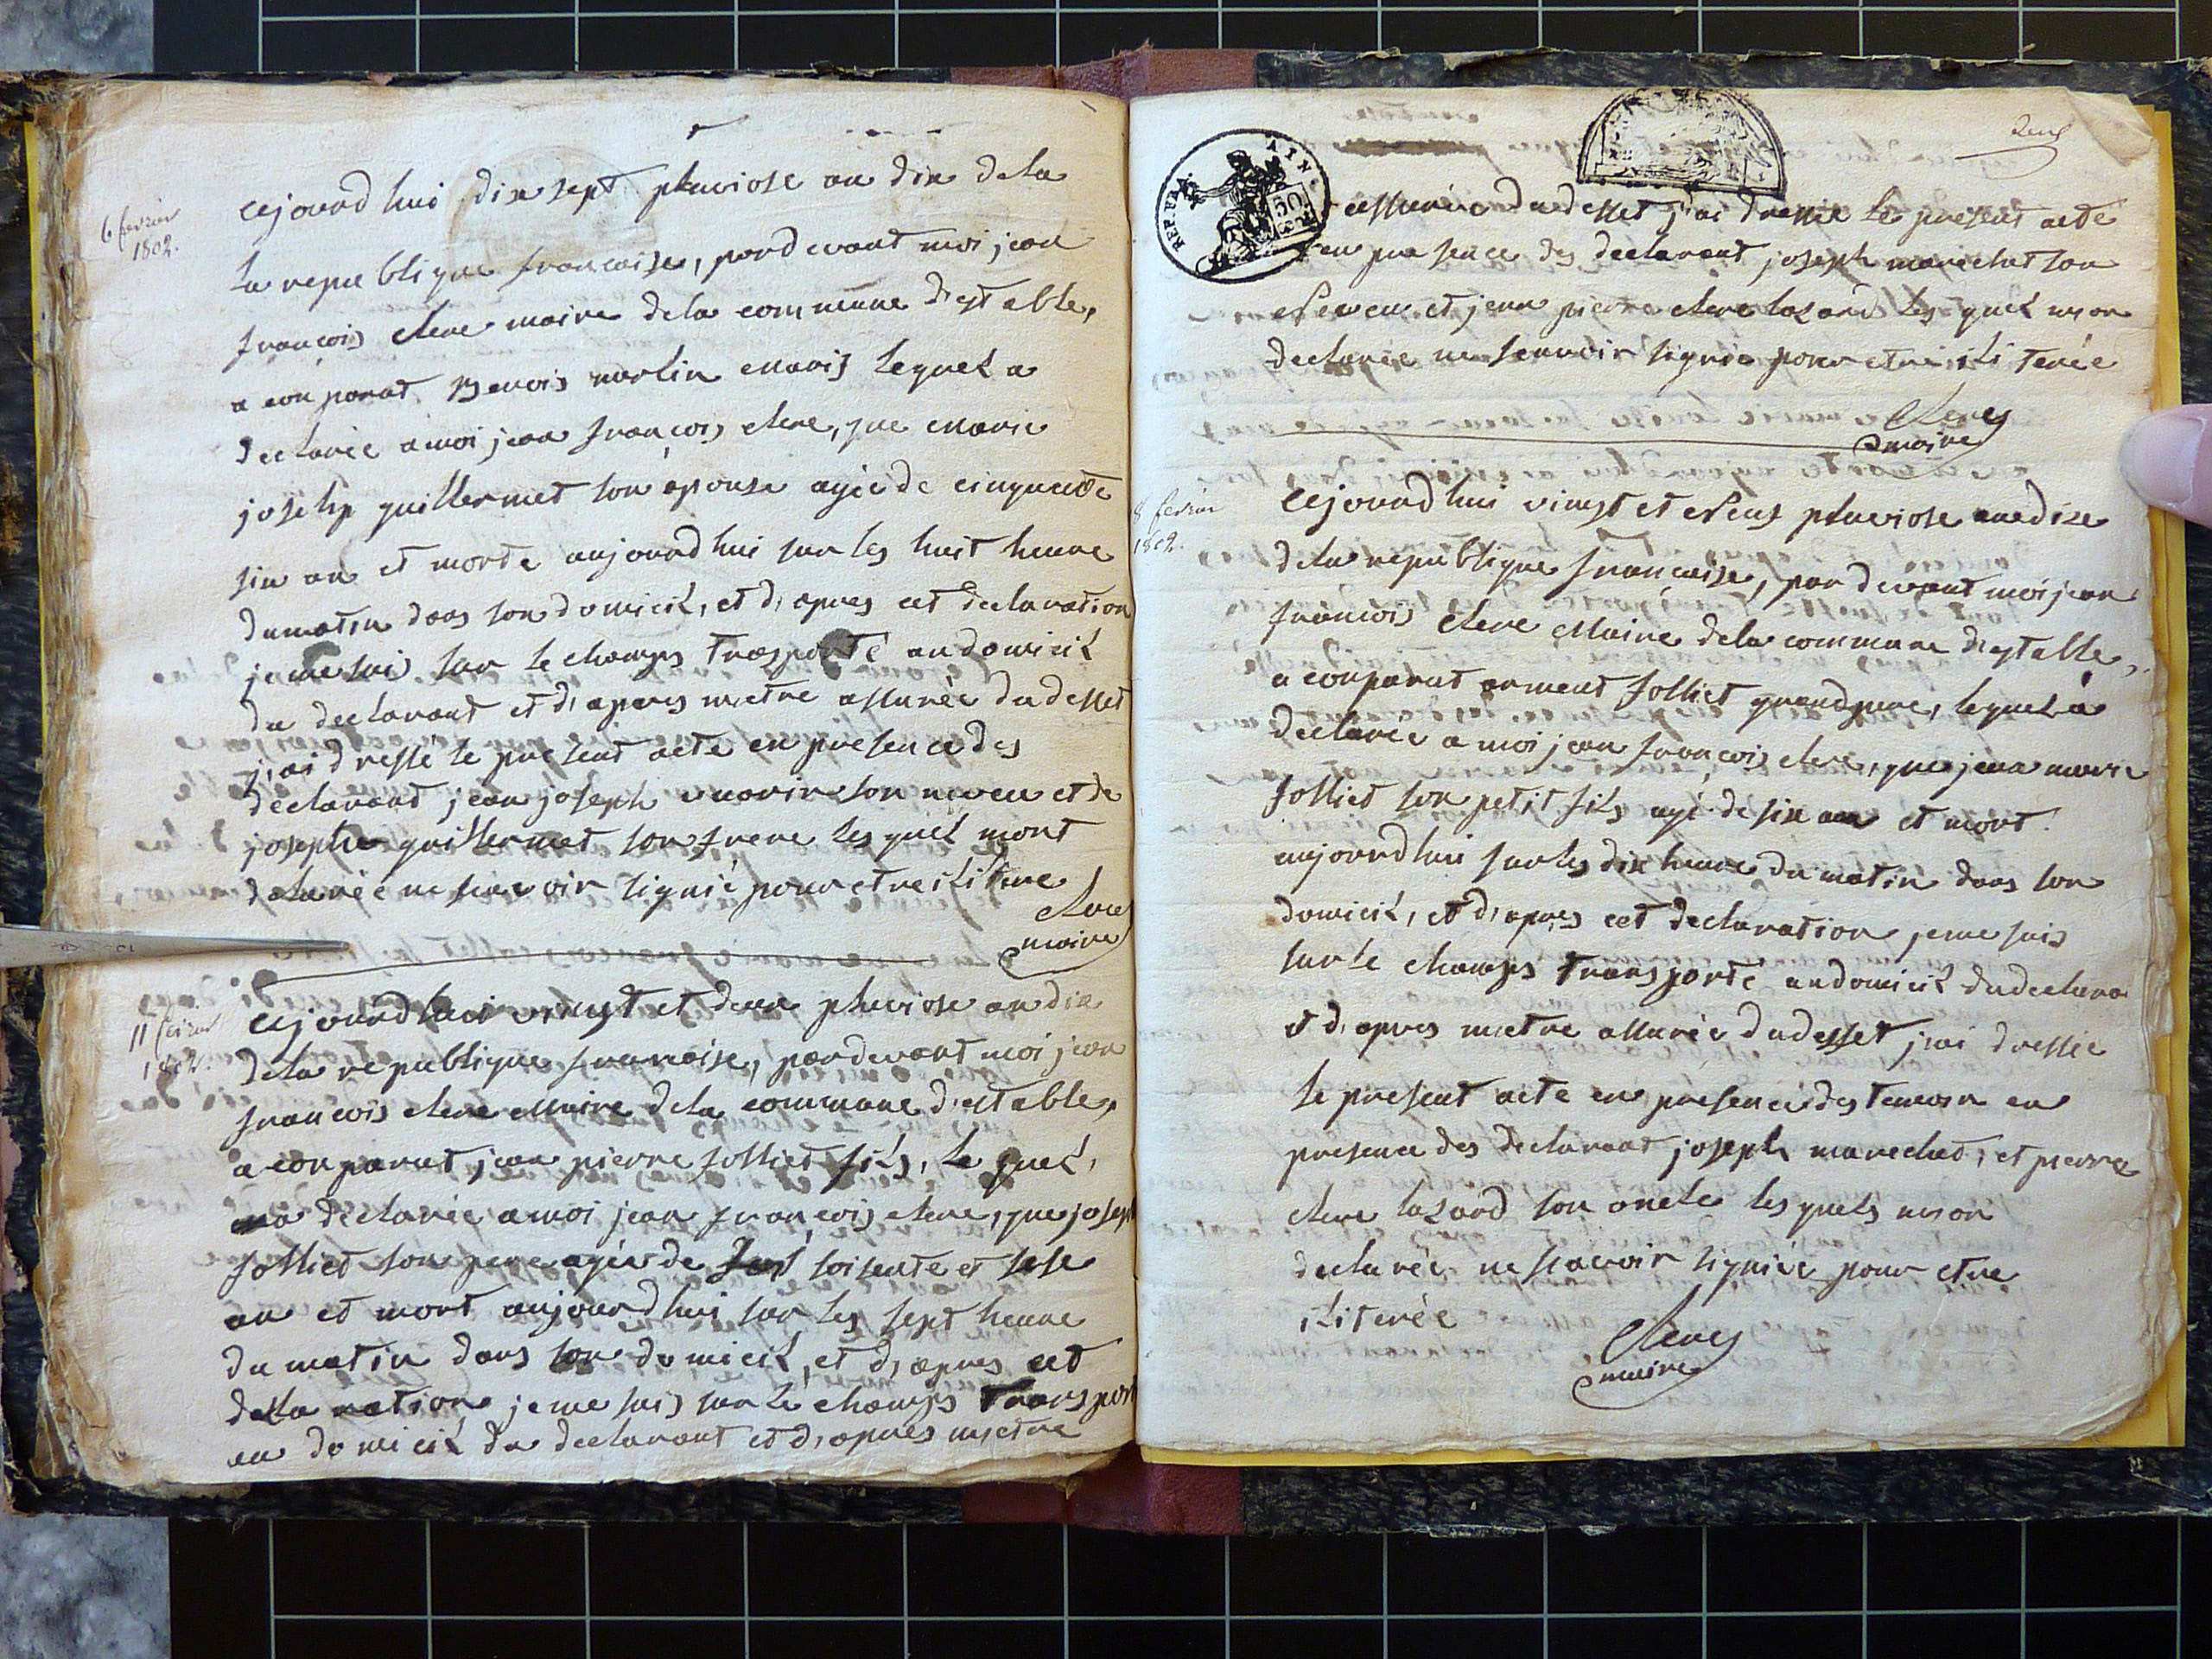 6 fevrier
1802.
Cejourd hui dix sept pluviose an dix dela
la republique francaise, pardevant moi jean
francois clerc maire dela commune d'estable,
a conparut Benois marlin maris lequel a
declarée a moi jean francois clerc, que marie
josehp guillermet son epouse agée de cinquente
six an et morte aujourd hui sur les huit heure
dumatin dans son domicil, et d, apres cet declaration
jeme suis sur le champs trasporté audomicil
du declarant et d, apres metre assurée dudesset
j, ai dressé le present acte en presence des
declarant jean joseph marin son neveu et de
josephe guillermet son frere les quel mont
delarée ne scavoir signié pour etre ilitere
clerc
maire
11 fevrier
1802.
Cejourd hui vingt et deux pluviose an dix
dela republique francoise, pardevant moi jean
francois clerc maire dela commune d'estable,
a conparut jean pierre jolliet fils, le quel,
a declarée amoi jean francois clerc, que joseph
jolliet son pere agée de soisente et sese
an et mort aujourd hui sur les sept heure
du matin dans son domicil, et d, apres cet
della ration jeme suis sur le champs transport
au domicil du declarant et d, apres metre
deux
REP. FRA.
AIN.
50
assurée dudesset j'ai dressé le present acte
en presence des declarant joseph marechat son
neveu et jean pierre clerc lazard les quel mon
declarée ne scavoir signée pour etre ili terée
Clerc
maire
8 fevrier
1802.
Cejourd hui vingt et neuf pluviose an dixe
dela republique française, par devant moi jean
francois clerc maire dela commune d'estable,
a conparut arment jolliet grandpere, lequel a
declarée a moi jean françois clerc, que jean marie
jolliet son petit fils agé de six an et mort
aujourdhui sur les dix heure du matin dans son
domicil, et d, apres cet declaration jeme suis
sur le champs transporté audomicil dudeclara
et d, apres metre assurée dudesset j'ai dressée
le present acte en presence des temoin en
presence des declarant joseph marechat, et pierre
clerc lazard son oncle les quels mon
declarée ne scavoir signiée pour etre
iliterée
Clerc
maire